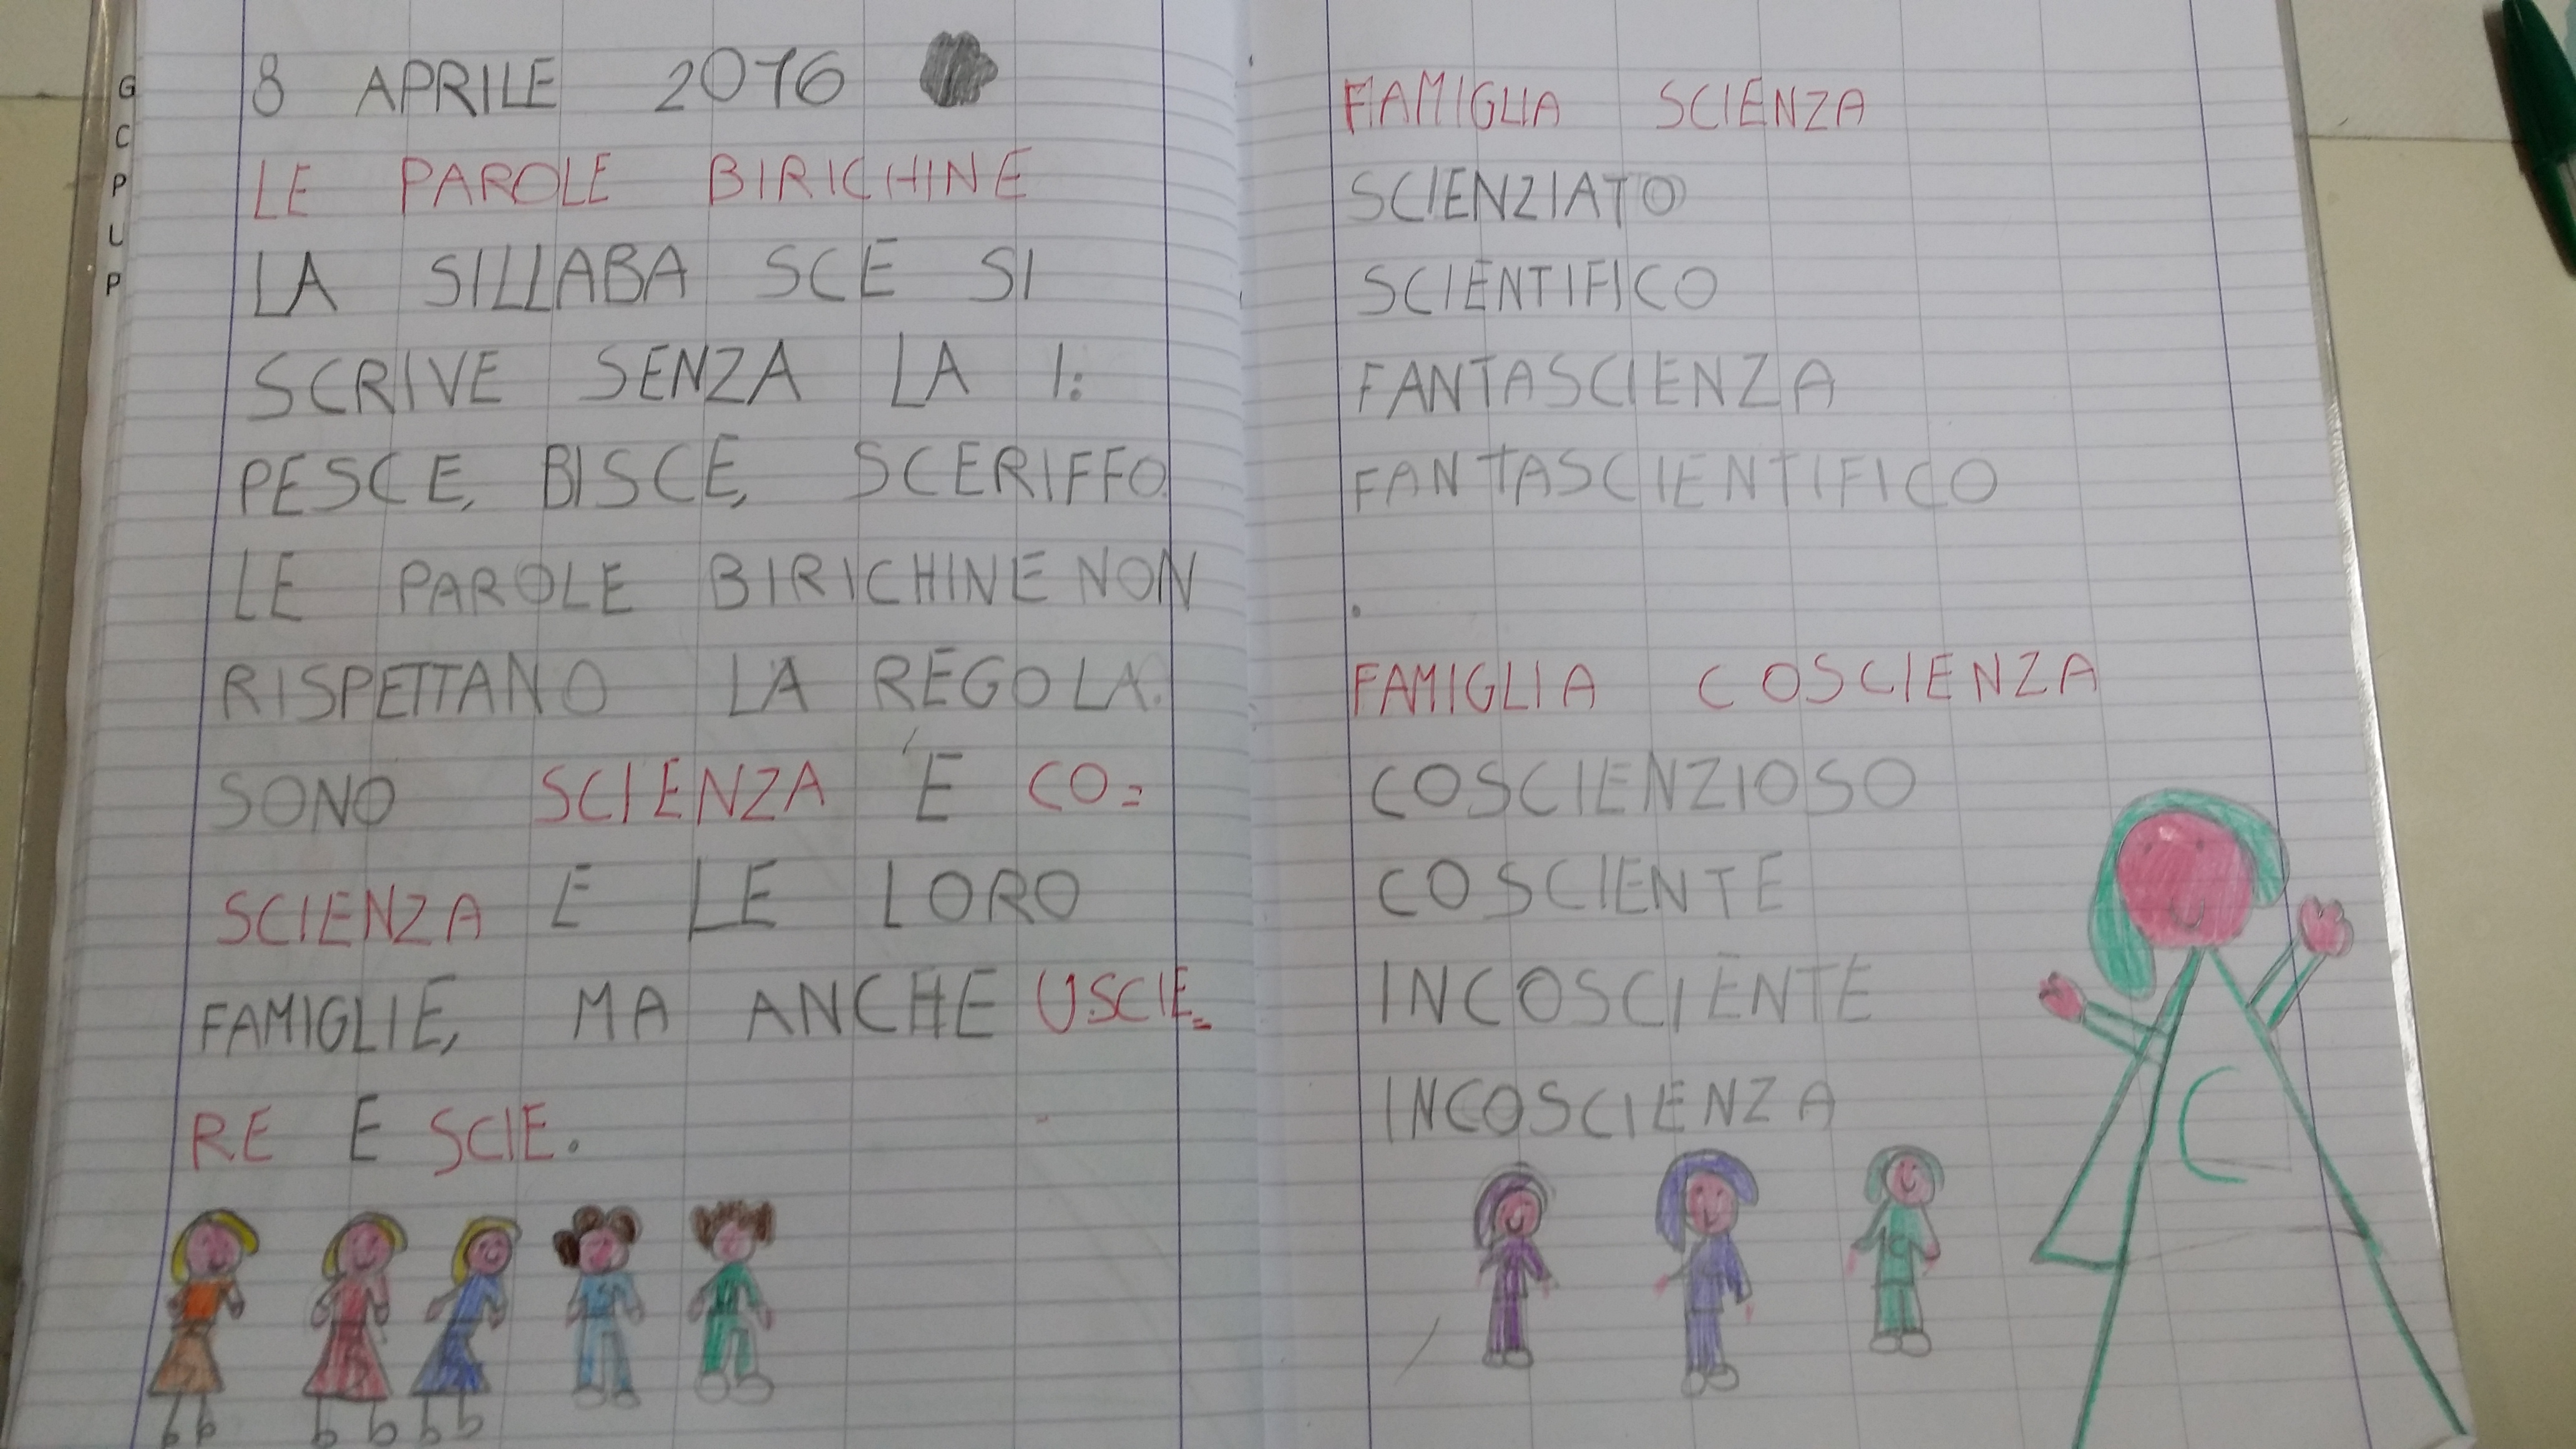 8 APRILE 2016
LE PAROLE BIRICHINE
LA SILLABA SCE SI
SCRIVE SENZA LA I:
PESCE, BISCE, SCERIFFO.
LE PAROLE BIRICHINE NON
RISPETTANO LA REGOLA.
SONO SCIENZA E CO=
SCIENZA E LE LORO
FAMIGLIE, MA ANCHE USCIE=
RE E SCIE.
G
C
P
U
P
FAMIGLIA SCIENZA
SCIENZIATO
SCIENTIFICO
FANTASCIENZA
FANTASCIENTIFICO
FAMIGLIA COSCIENZA
COSCIENZIOSO
COSCIENTE
INCOSCIENTE
INCOSCIENZA
C